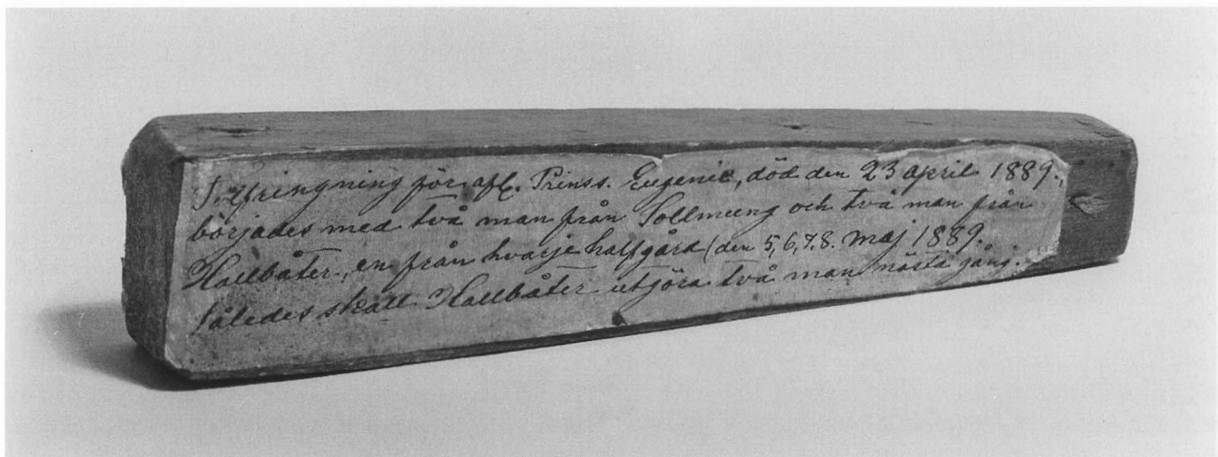 S. ringning för afl. Prinss. Eugenie, död den 23 april 1889.,
börjades med två man från Sollmung och två man från
Hallbåter, en från hvarje halfgård (den 5,6,7.8. maj 1889.
således skall Hallbåter utgöra två man nästa gång.